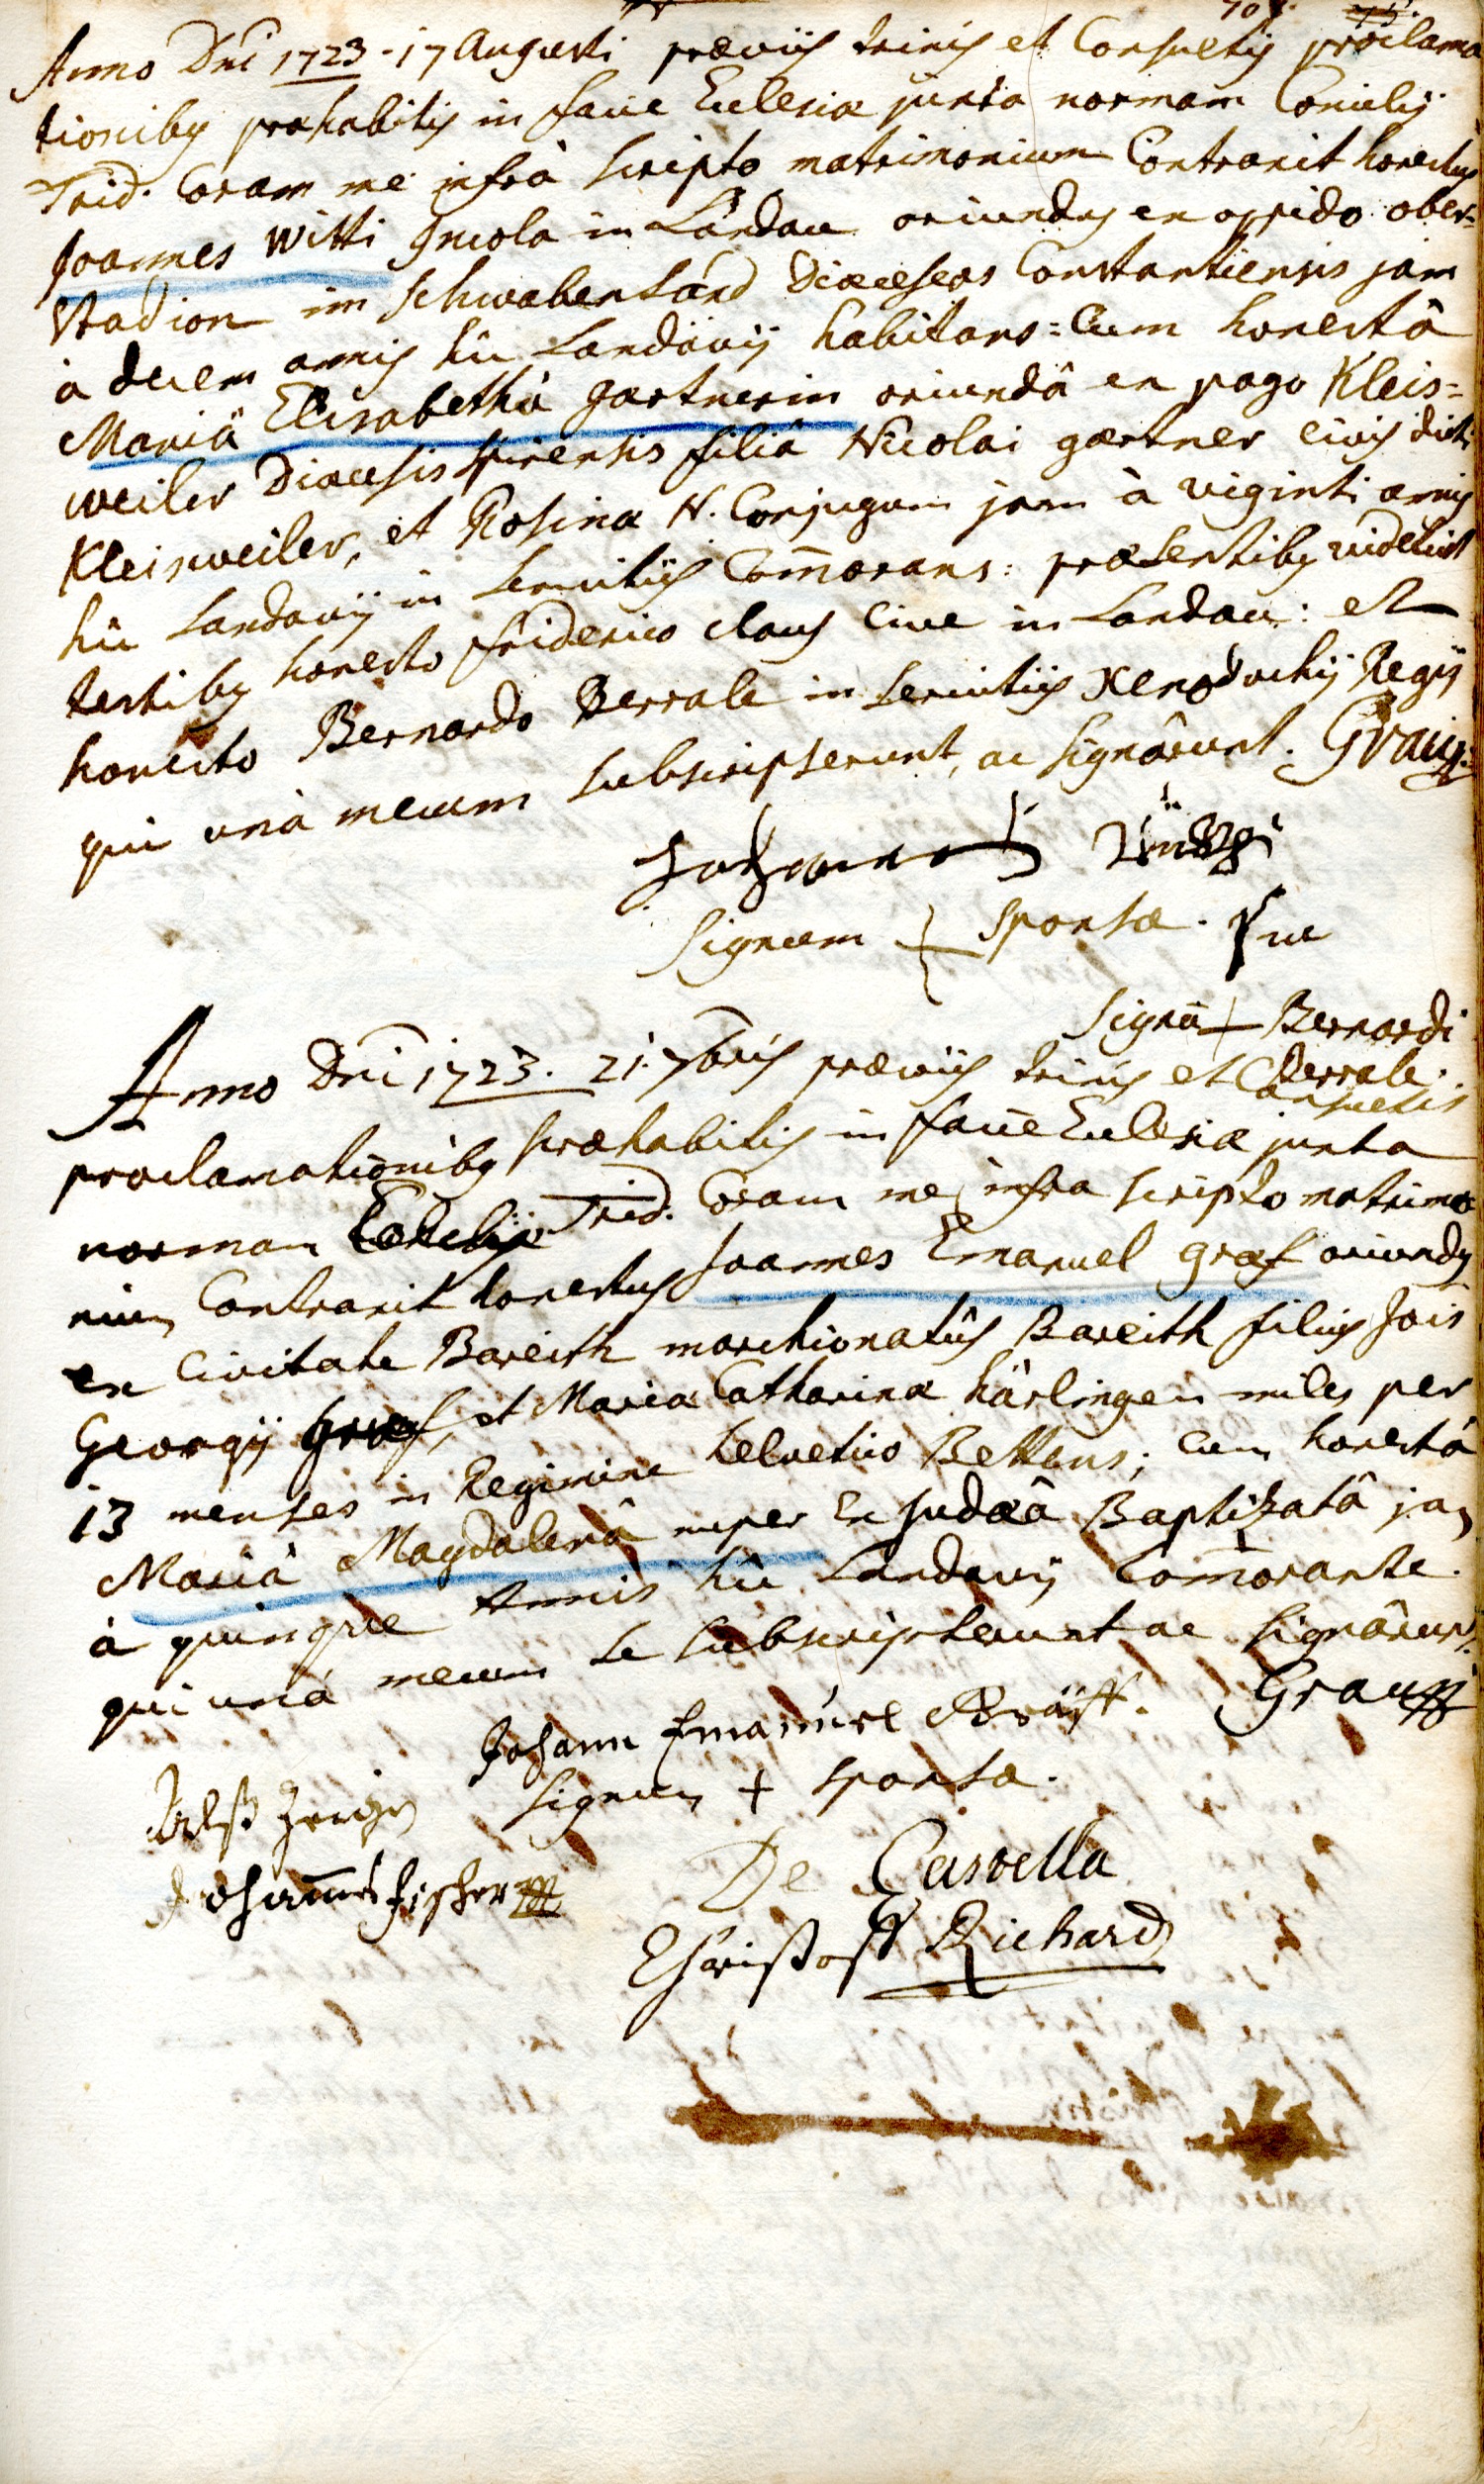 Anno Dni 1723 - 17 Augusti præviis trinis et Consuetis proclama
tionibus præhabitis in facie Ecclesiæ juxta normam Concilij
Trid. Coram me infrà scripto matrimonium Contraxit honestus
Joannes Witti Incola in Landau oriundus ex oppido ober=
Stadion im Schwabenland Diœceseos Constantiensis jam
à decem annis hic Landavij habitans = Cum honestâ
Mariâ Elisabethâ gartnerin oriundâ ex pago Kleis=
weiler Diœcesis Spirensis filiâ Nicolai gærtner civis dicti
Kleisweiler, et Rosinæ N. Conjugum jam à viginti annis
hic Landavij in servitijs Com̄orans: præsentibus videlicet
testibus honesto friderico Claus Cive in Landau: et
honesto Bernardo Berrale in servitijs Xenodochij Regij
qui unà mecum subscripserunt, ac signârunt.
Signum + Sponsæ.
Signū + Bernardi
Berrale.
Anno Dni 1723. 21. 7bris præviis trinis et Consuetis
proclamationibus præhabitis in facie Ecclesiæ juxta
normam Concilij Trid. Coram me infra scripto matrimo
nium Contraxit honestus Joannes Emanuel græf oriundus
ex Civitate Bareith marchionatûs Bareith filius Jois
Georgij græf, et Mariæ Catharinæ härlingen miles per
13 menses in Regimine helvetico Bettens; Cum honestâ
Mariâ Magdalenâ nuper Ex Judæâ Baptizatâ jam
à quinque Annis hic Landavij Com̄orante.
qui unà mecum se subscripserunt ac signârunt.
Johann Emanuel Gräff.
Signum + sponsæ.
Johannes fischer
De Castella
Christoff Richard